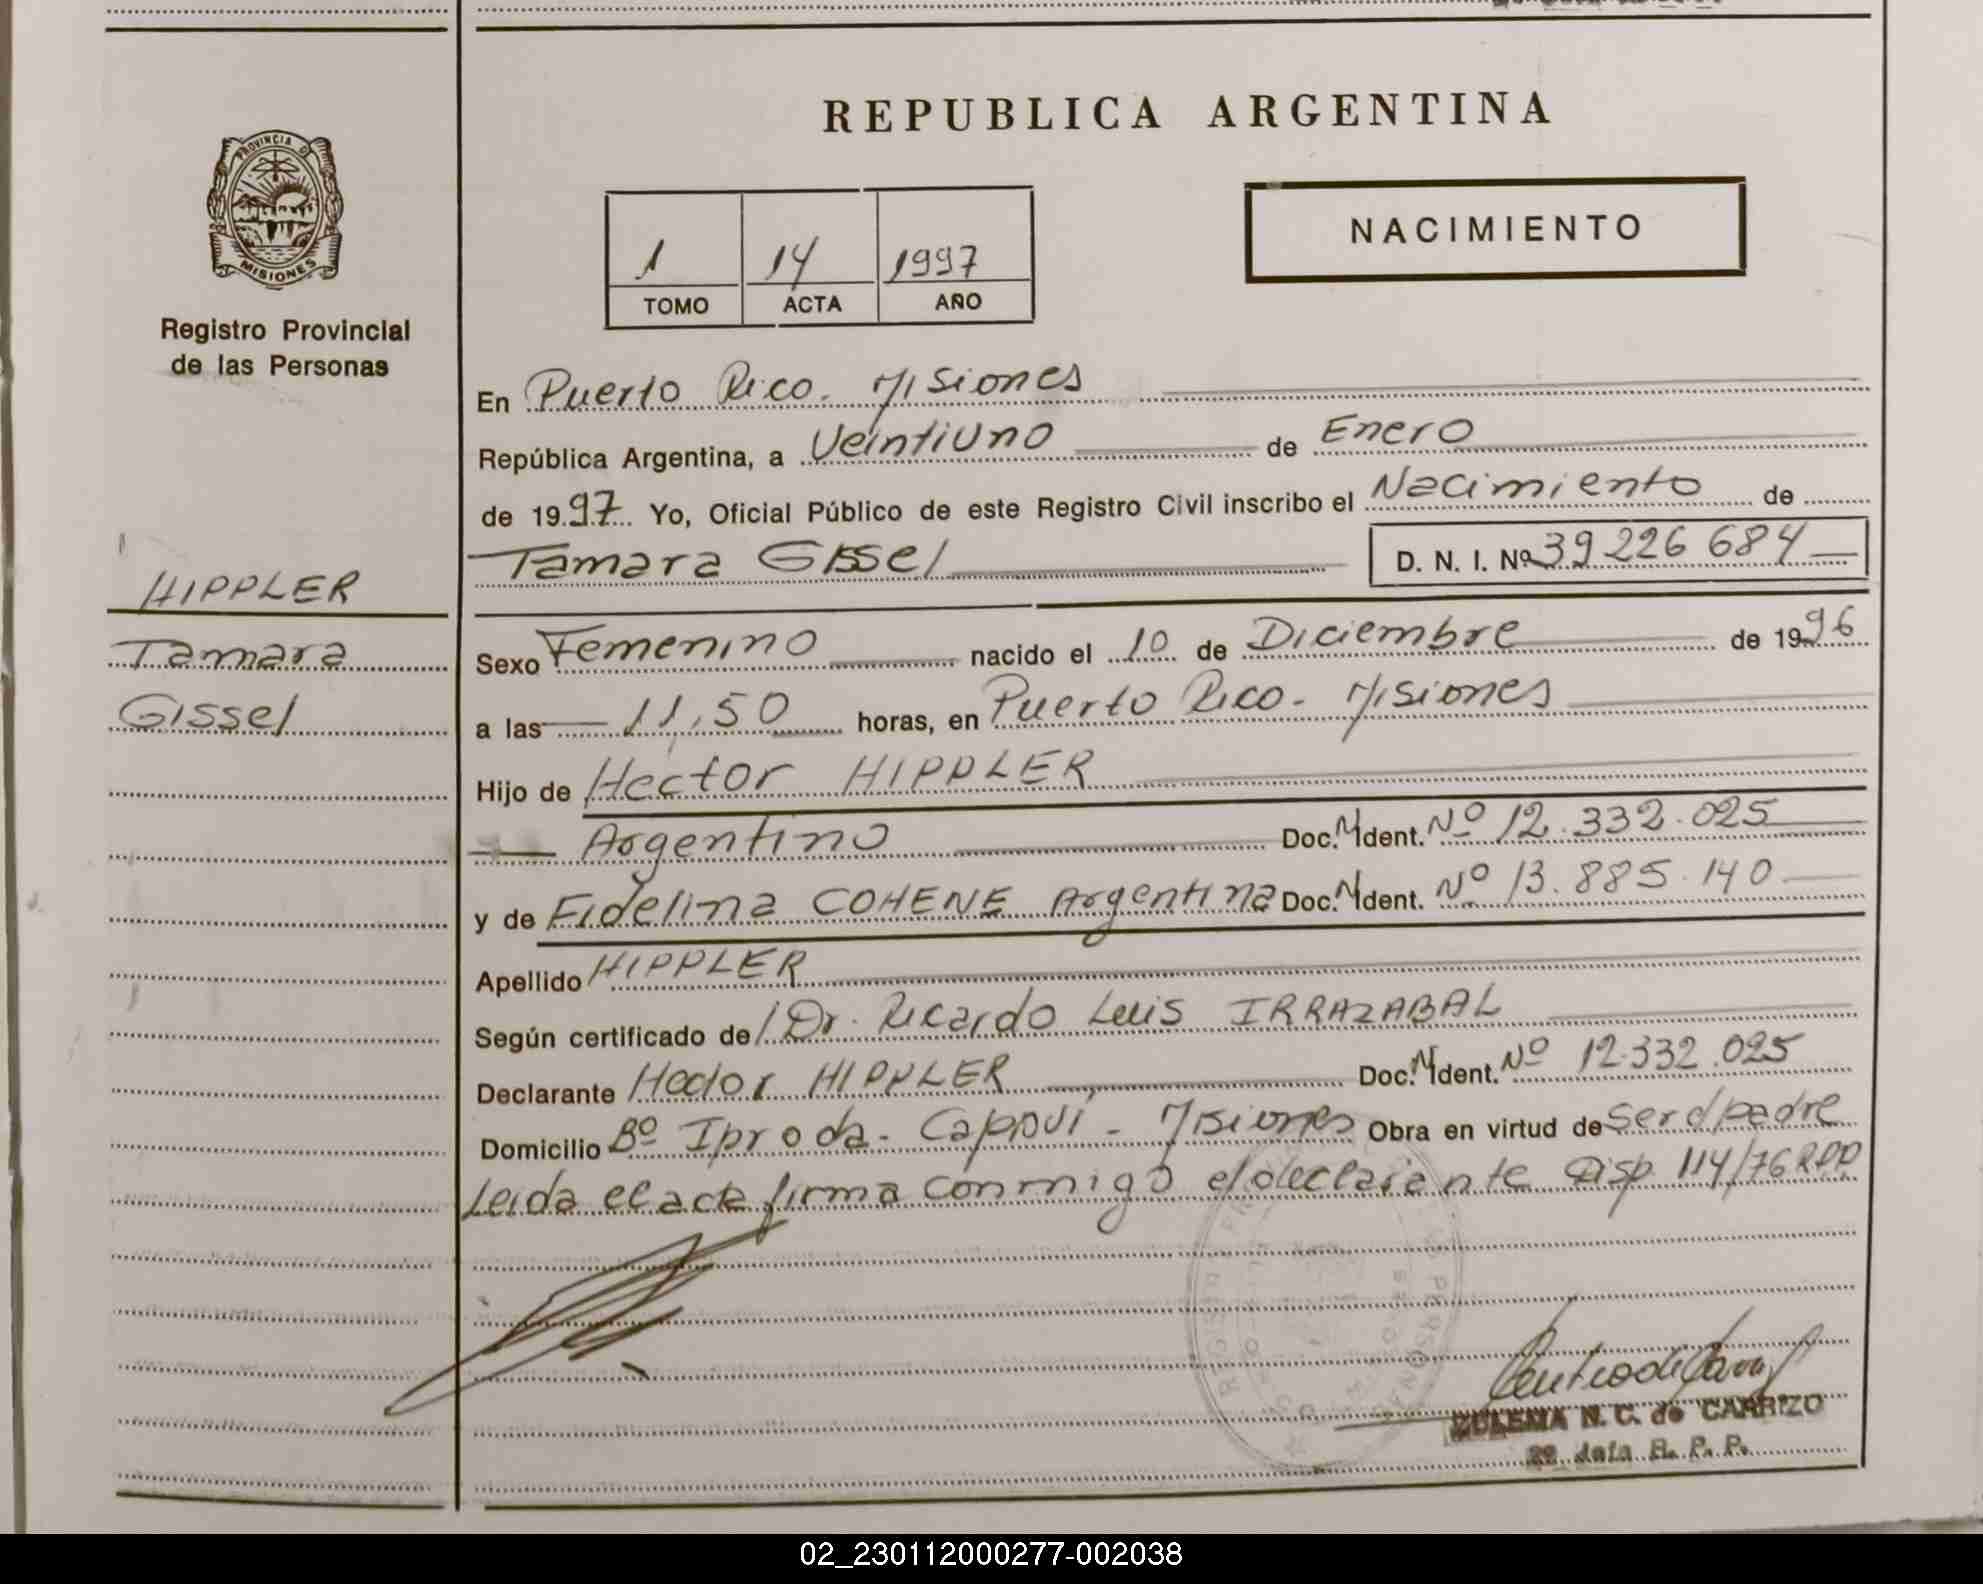 REPUBLICA ARGENTINA
PROVINCIA DE
MISIONES
Registro Provincial
de las Personas
1 14 1997
TOMO ACTA AÑO
NACIMIENTO
HIPPLER
Tamara
Gissel
En Puerto Rico. Misiones
República Argentina, a Veintiuno de Enero
de 1997 Yo, Oficial Público de este Registro Civil inscribo el Nacimiento de
Tamara Gissel D. N. I. Nº 39 226 684
Sexo Femenino nacido el 10 de Diciembre de 1996
a las 11,50 horas, en Puerto Rico - Misiones
Hijo de Hector HIPPLER
Argentino Doc. N Ident. Nº 12.332.025
y de Fidelina COHENE Argentina Doc. N Ident. Nº 13.885.140
Apellido HIPPLER
Según certificado de Dr. Ricardo Luis IRRAZABAL
Declarante Hector HIPPLER Doc. N Ident. Nº 12.332.025
Domicilio Bº Iproda - Capioví - Misiones Obra en virtud de ser el padre
Leida el acta firma conmigo el declarante Disp 114/76 RPP
ZULEMA N. C. de CARRIZO
2º Jefa R. P. P.
02_230112000277-002038